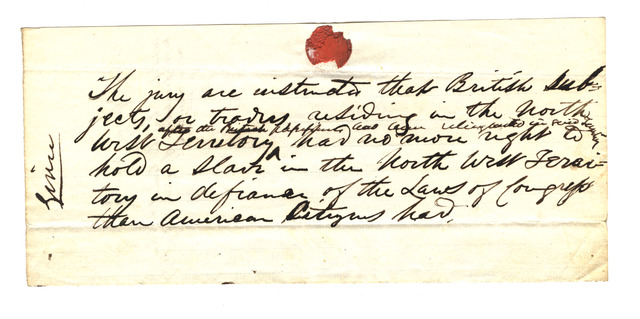 The jury are instructed that British sub-
jects, or traders residing in the North
after the British possession had been relinquished in said Territory
West Territory ^ had no more right to
hold a slave in the North West Terri-
tory in defiance of the Laws of Congress
than American Citizens had.
Given